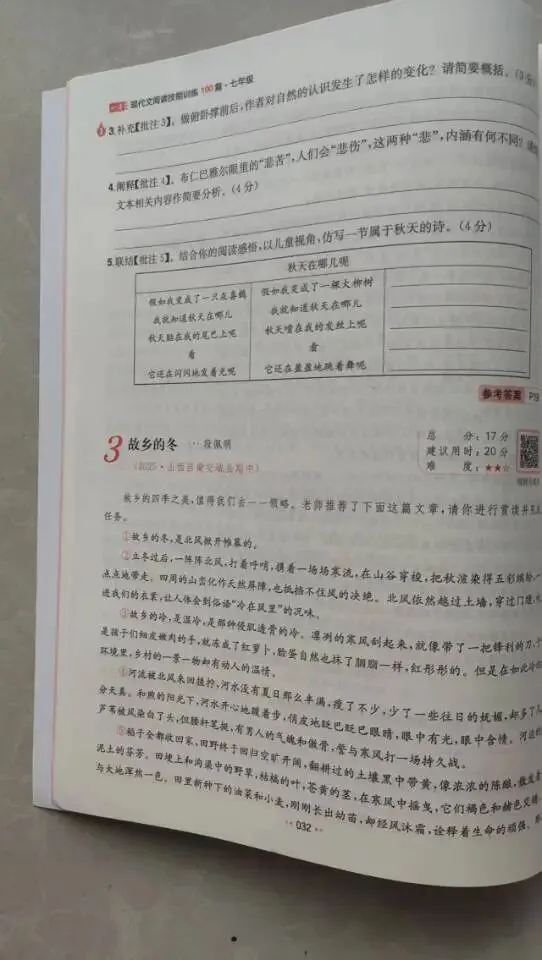 一本 现代文阅读技能训练100篇·七年级
3.补充【批注3】。做俯卧撑前后,作者对自然的认识发生了怎样的变化?请简要概括。(3分)
4.阐释【批注4】。布仁巴雅尔眼里的“悲苦”,人们会“悲伤”,这两种“悲”,内涵有何不同?请结
文本相关内容作简要分析。(4分)
5.联结【批注5】。结合你的阅读感悟,以儿童视角,仿写一节属于秋天的诗。(4分)
秋天在哪儿呢
假如我变成了一只灰喜鹊
我就知道秋天在哪儿
秋天贴在我的尾巴上呢
看
它还在闪闪地发着光呢
假如我变成了一棵大柳树
我就知道秋天在哪儿
秋天喷在我的发丝上呢
看
它还在盈盈地跳着舞呢
参考答案 P19
3 故乡的冬 ··· 段佩明
(2025·山西吕梁交城县期中)
总 分:17分
建议用时:20分
难 度:★★☆
故乡的四季之美,值得我们去一一领略。老师推荐了下面这篇文章,请你进行赏读并完成
任务。
①故乡的冬,是北风掀开帷幕的。
②立冬过后,一阵阵北风,打着呼哨,携着一场场寒流,在山谷穿梭,把秋渲染得五彩缤纷,一
点点地带走。四周的山峦化作天然屏障,也抵挡不住风的决绝。北风依然越过土墙,穿过门缝,
进我们的衣裳,让人体会到俗语“冷在风里”的况味。
③故乡的冷,是温冷,是那种侵肌透骨的冷。凛冽的寒风刮起来,就像带了一把锋利的刀,
是孩子们细皮嫩肉的手,就冻成了红萝卜,脸蛋自然也抹了胭脂一样,红彤彤的。但是在如此冷的
环境里,乡村的一景一物却有动人的温情。
④河流被北风来回撩拧,河水没有夏日那么丰满,瘦了不少,少了一些往日的妩媚,却多了几
分天真。和煦的阳光下,河水开心地踱着步,俏皮地眨巴眨巴眼睛,眼中有光,眼中含情。河边的
芦苇被风染白了头,但腰杆笔挺,有男人的气魄和傲骨,誓与寒风打一场持久战。
⑤稻子全都收回家,田野终于回归空旷开阔,翻耕过的土壤黑中带黄,像浓浓的陈酿,散发着
泥土的芬芳。田埂上和沟渠中的野草,枯槁的叶,苍黄的茎,在寒风中摇曳,它们褐色和赭色交
与大地浑然一色。田里新种下的油菜和小麦,刚刚长出幼苗,却经风沐霜,诠释着生命的顽强。
032